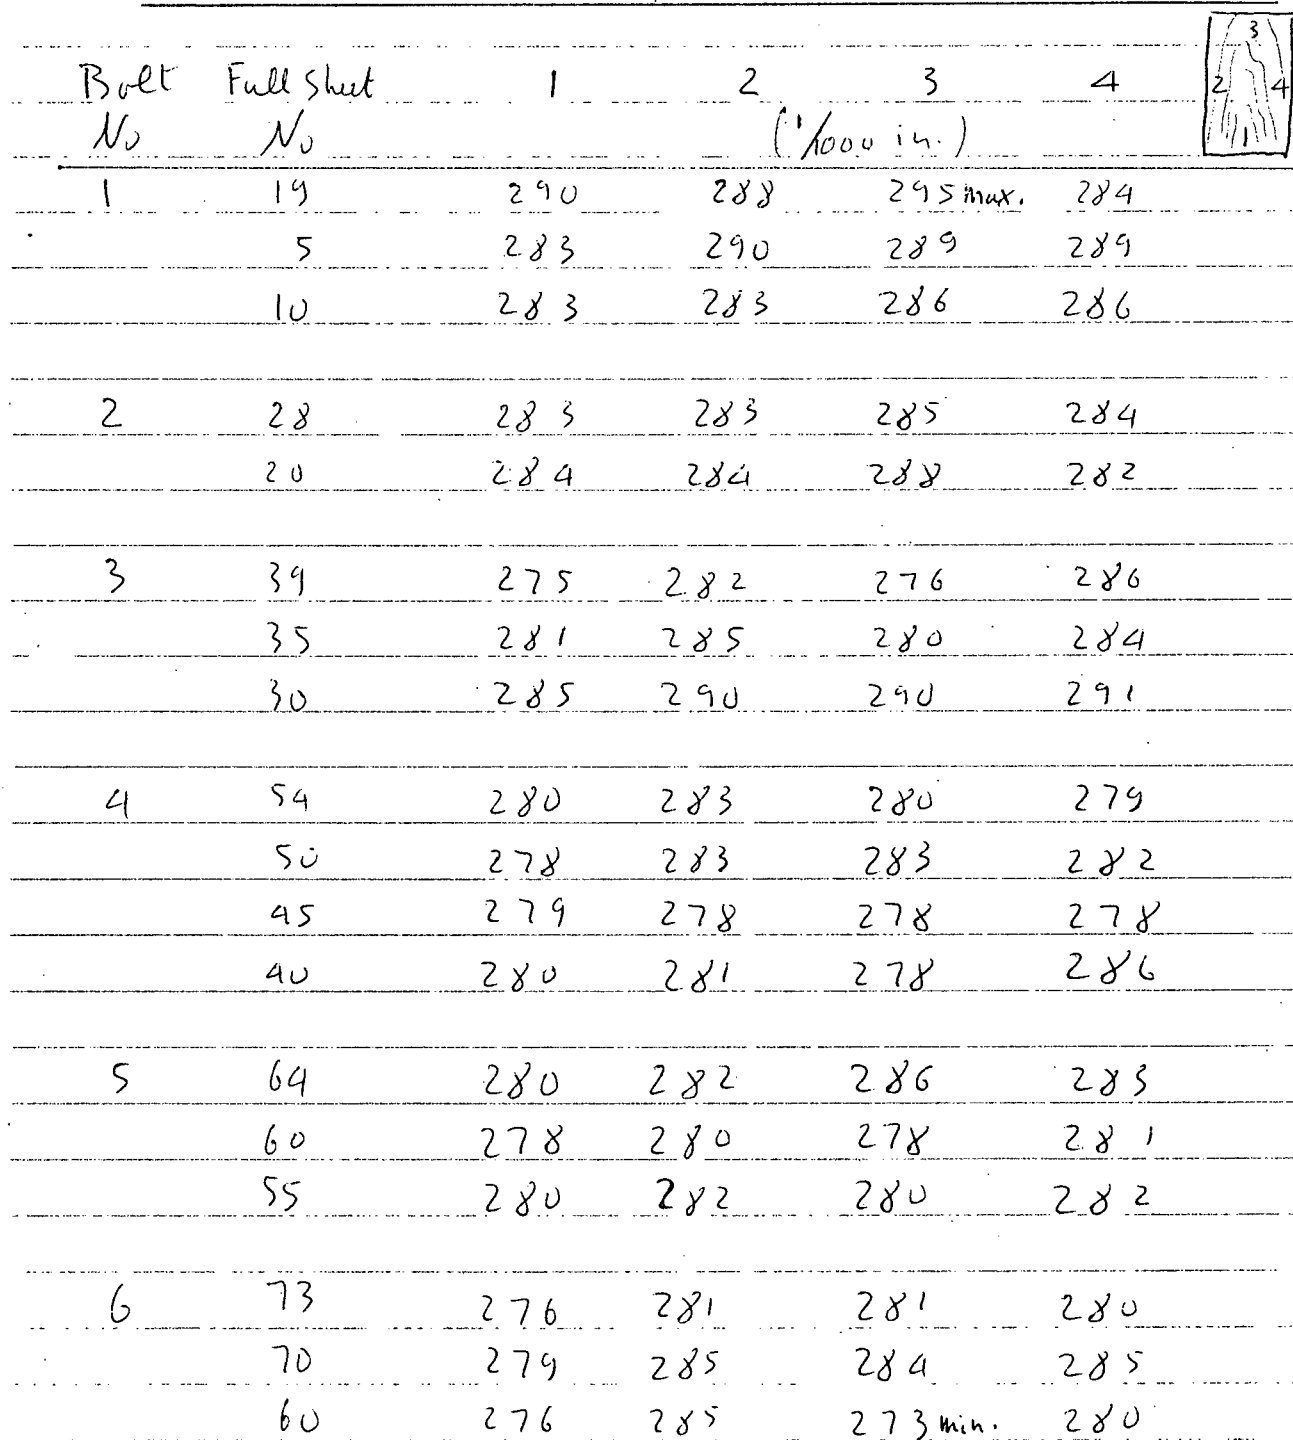 Bolt Full Sheet 1 2 3 4
No No (1/1000 in.)
3
2 4
1
1 19 290 288 295 max. 284
5 283 290 289 289
10 283 283 286 286
2 28 283 283 285 284
20 284 284 288 282
3 39 275 282 276 286
35 281 285 280 284
30 285 290 290 291
4 54 280 283 280 279
50 278 283 283 282
45 279 278 278 278
40 280 281 278 286
5 64 280 282 286 283
60 278 280 278 281
55 280 282 280 282
6 73 276 281 281 280
70 279 285 284 285
60 276 285 273 min. 280